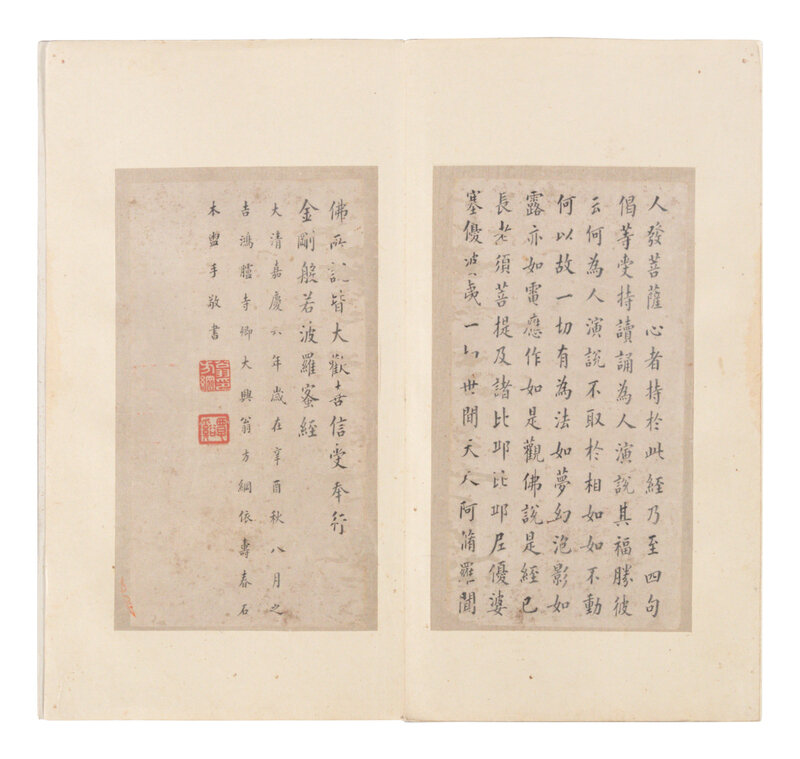 人發菩薩心者持於此經乃至四句
偈等受持讀誦為人演說其福勝彼
云何為人演說不取於相如如不動
何以故一切有為法如夢幻泡影如
露亦如電應作如是觀佛說是經已
長老須菩提及諸比邱比邱尼優婆
塞優波夷一切世間天人阿脩羅聞
佛所說皆大歡喜信受奉行
金剛般若波羅蜜經
大清嘉慶六年歲在辛酉秋八月之
吉鴻臚寺卿大興翁方綱依壽春石
本盥手敬書
翁方綱
覃谿